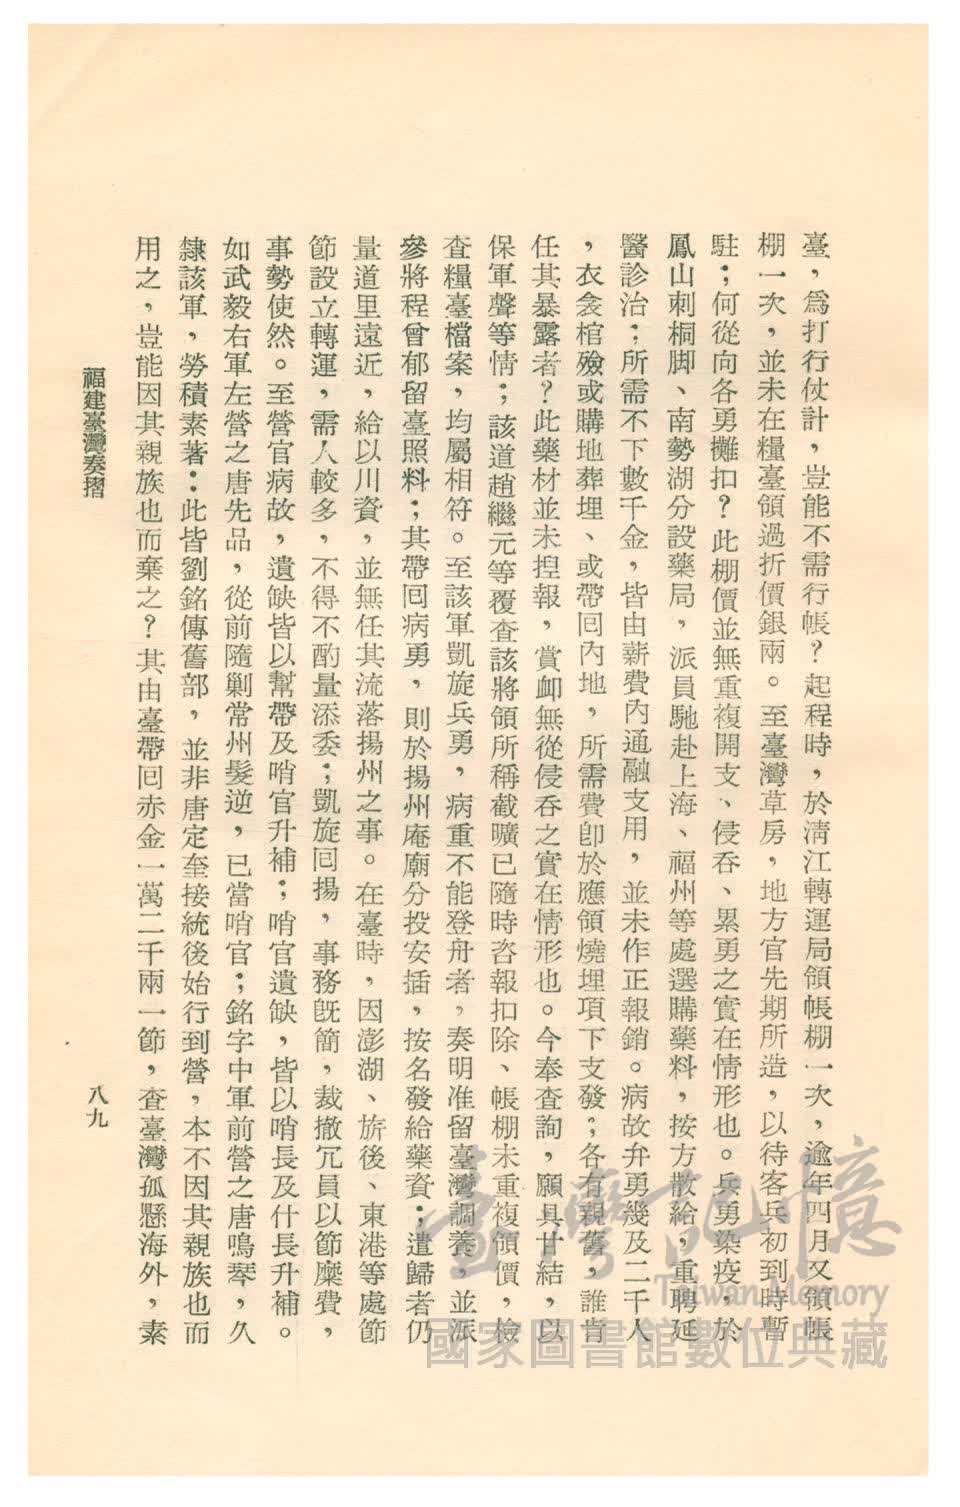 臺，爲打行仗計，豈能不需行帳？起程時，於淸江轉運局領帳棚一次，逾年四月又領帳
棚一次，並未在糧臺領過折價銀兩。至臺灣草房，地方官先期所造，以待客兵初到時暫
駐；何從向各勇攤扣？此棚價並無重複開支、侵吞、累勇之實在情形也。兵勇染疫，於
鳳山刺桐脚、南勢湖分設藥局，派員馳赴上海、福州等處選購藥料，按方散給，重聘延
醫診治；所需不下數千金，皆由薪費內通融支用，並未作正報銷。病故弁勇幾及二千人
，衣衾棺殮或購地葬埋、或帶囘內地，所需費卽於應領燒埋項下支發；各有親舊，誰肯
任其暴露者？此藥材並未揑報，賞卹無從侵吞之實在情形也。今奉查詢，願具甘結，以
保軍聲等情；該道趙繼元等覆查該將領所稱截曠已隨時咨報扣除、帳棚未重複領價，檢
查糧臺檔案，均屬相符。至該軍凱旋兵勇，病重不能登舟者，奏明准留臺灣調養，並派
參將程曾郁留臺照料；其帶囘病勇，則於揚州庵廟分投安插，按名發給藥資；遣歸者仍
量道里遠近，給以川資，並無任其流落揚州之事。在臺時，因澎湖、旂後、東港等處節
節設立轉運，需人較多，不得不酌量添委；凱旋囘揚，事務旣簡，裁撤冗員以節糜費，
事勢使然。至營官病故，遺缺皆以幫帶及哨官升補；哨官遺缺，皆以哨長及什長升補。
如武毅右軍左營之唐先品，從前隨剿常州髮逆，已當哨官；銘字中軍前營之唐鳴琴，久
隸該軍，勞積素著：此皆劉銘傳舊部，並非唐定奎接統後始行到營，本不因其親族也而
用之，豈能因其親族也而棄之？其由臺帶囘赤金一萬二千兩一節，查臺灣孤懸海外，素
福建臺灣奏摺
八九
臺灣記憶
Taiwan Memory
國家圖書館數位典藏